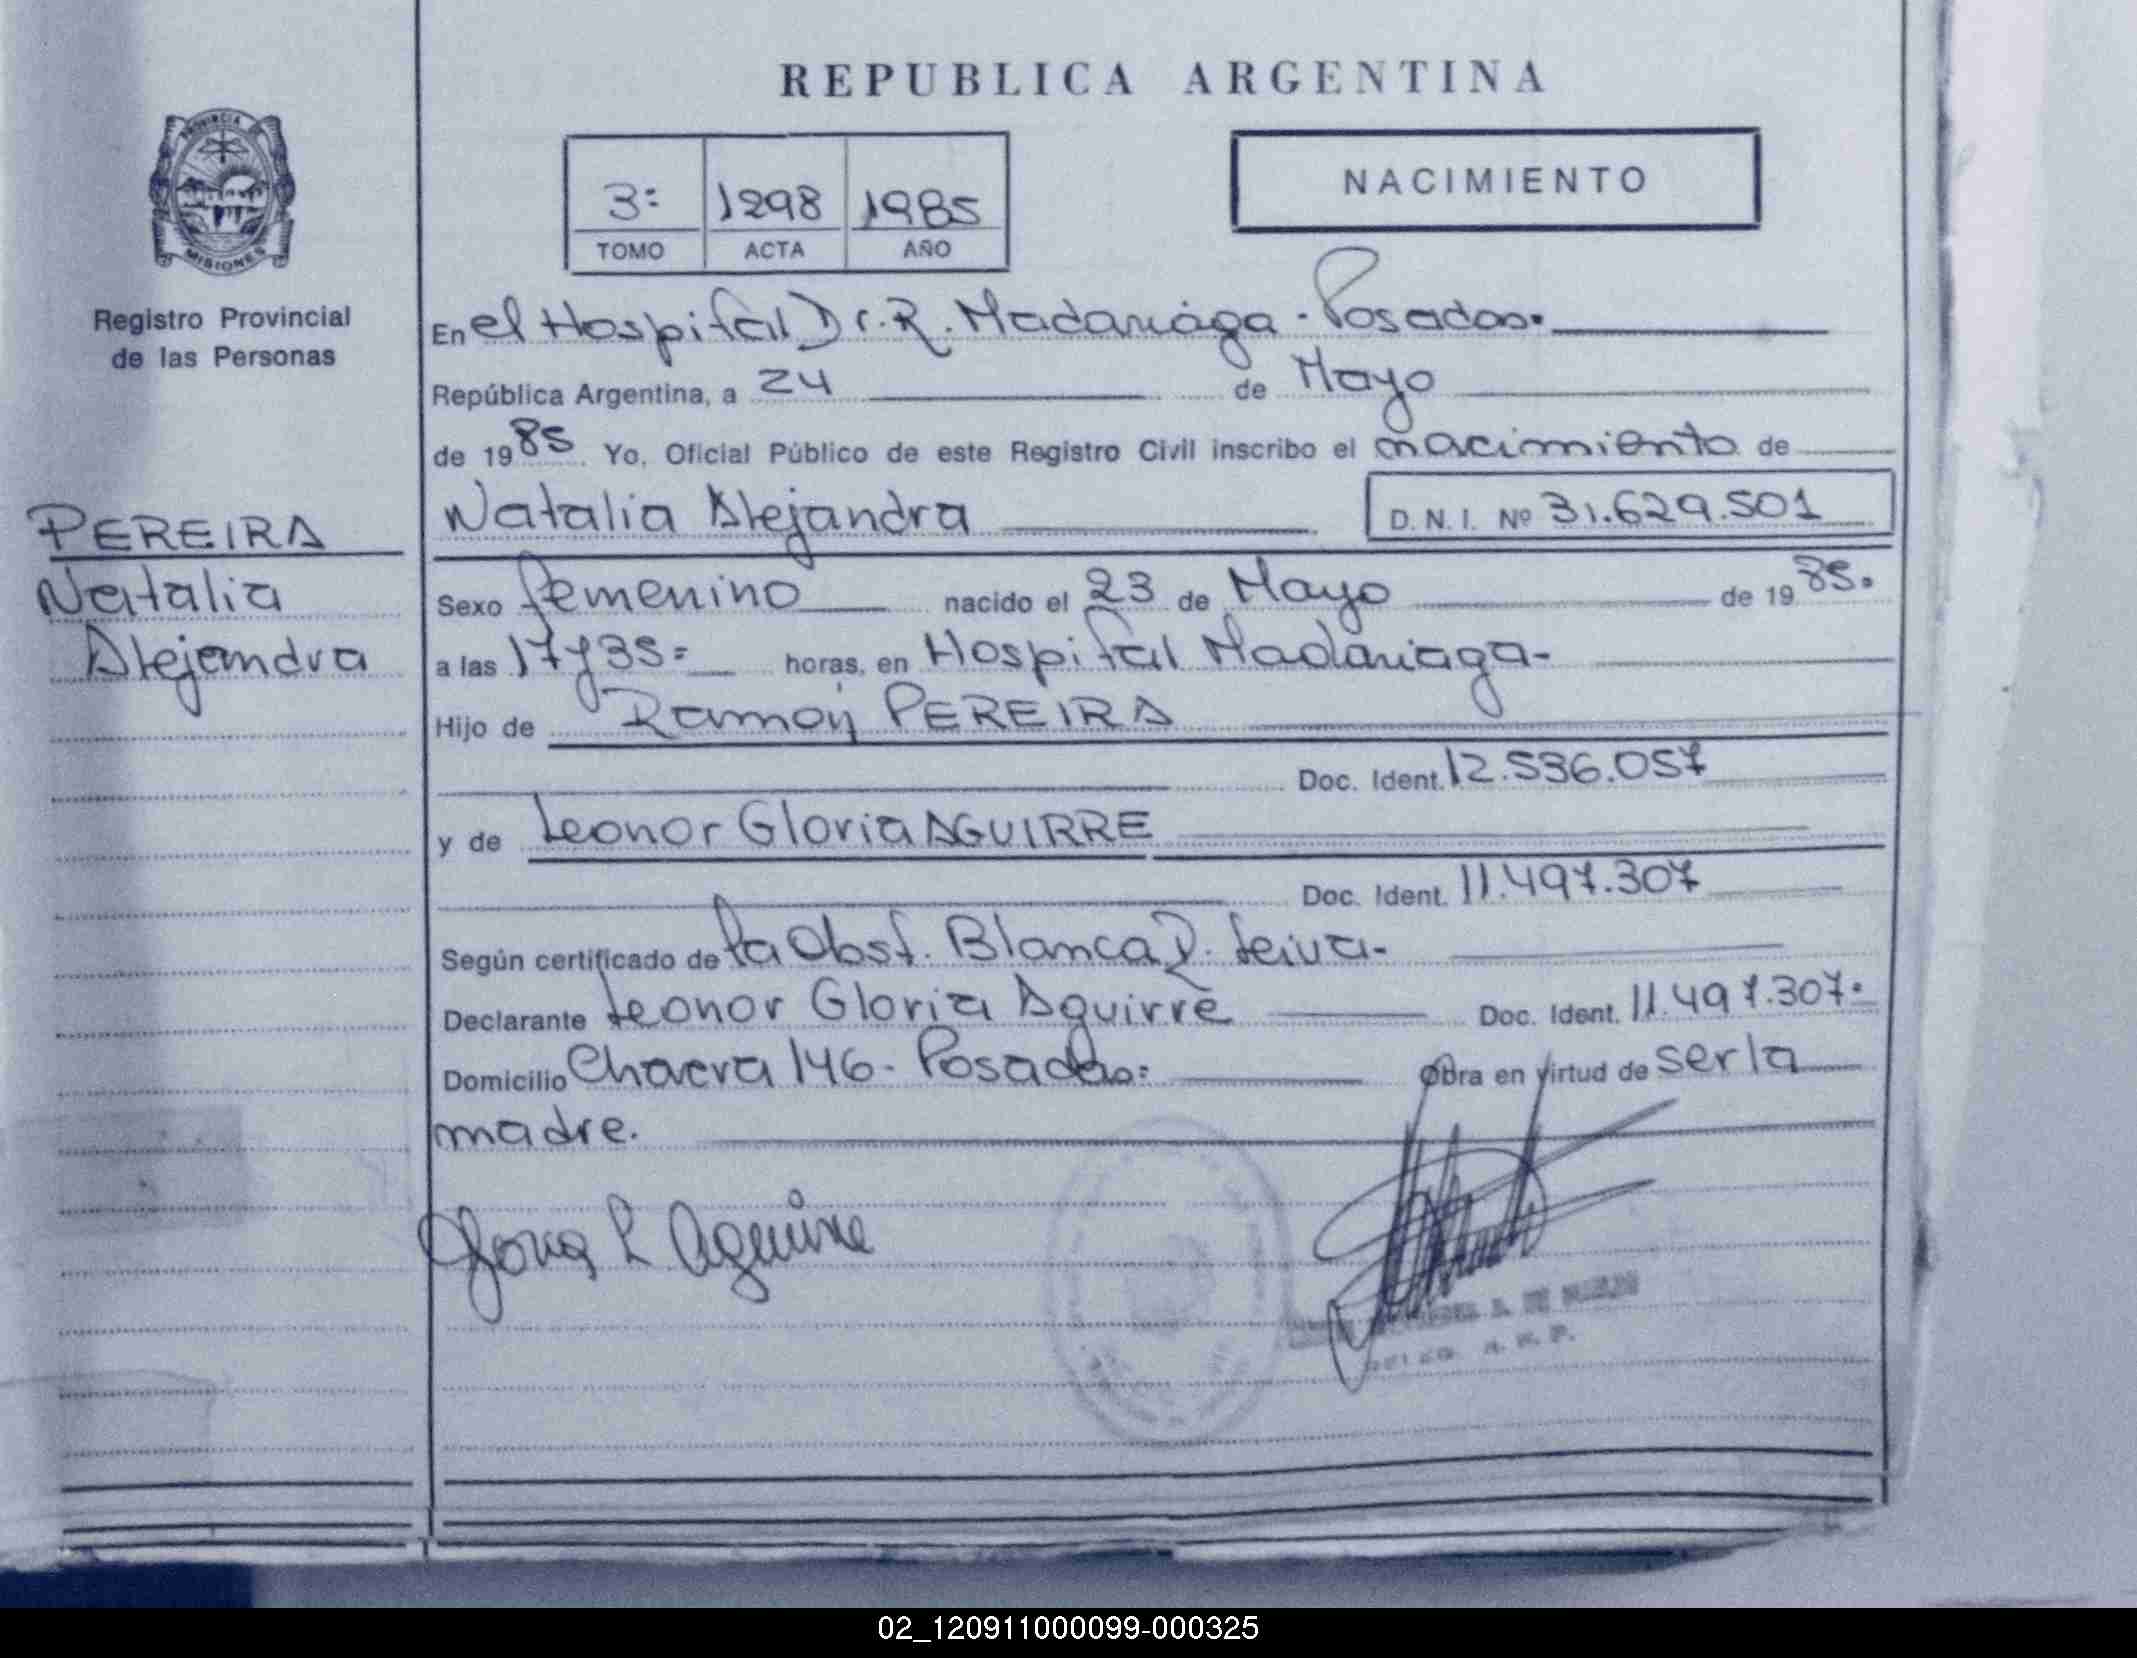 REPUBLICA ARGENTINA
PROVINCIA
MISIONES
Registro Provincial
de las Personas
3: 1298 1985
TOMO ACTA AÑO
NACIMIENTO
En el Hospital Dr. R. Madariaga - Posadas.
República Argentina, a 24 de Mayo
de 1985 Yo, Oficial Público de este Registro Civil inscribo el nacimiento de
PEREIRA
Natalia
Alejandra
Natalia Alejandra D.N.I. Nº 31.629.501
Sexo femenino nacido el 23 de Mayo de 1985.
a las 17 y 35= horas, en Hospital Madariaga-
Hijo de Ramón PEREIRA
Doc. Ident. 12.536.057
y de Leonor Gloria AGUIRRE
Doc. Ident. 11.497.307
Según certificado de la Obst. Blanca D. Leiva-
Declarante Leonor Gloria Aguirre Doc. Ident. 11.497.307.
Domicilio Chacra 146- Posadas= Obra en virtud de ser la
madre.
Gloria L Aguirre
02_120911000099-000325